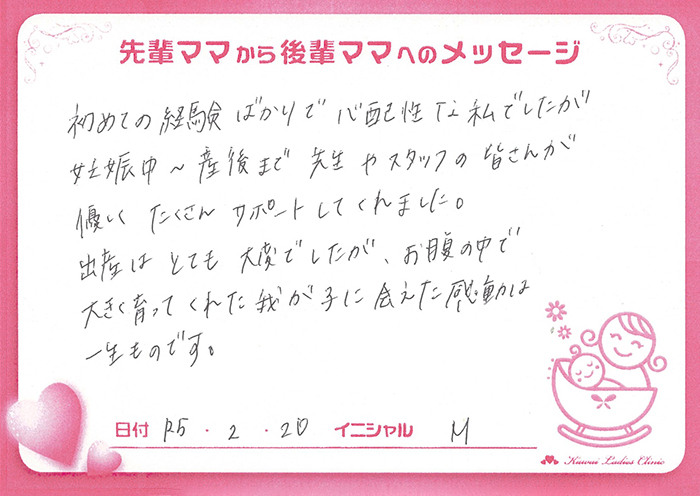 先輩ママから後輩ママへのメッセージ
初めての経験ばかりで心配性な私でしたが
妊娠中~産後まで先生やスタッフの皆さんが
優しくたくさんサポートしてくれました。
出産はとても大変でしたが、お腹の中で
大きく育ってくれた我が子に会えた感動は
一生ものです。
日付 R5・2・20 イニシャル M
Kawai Ladies Clinic